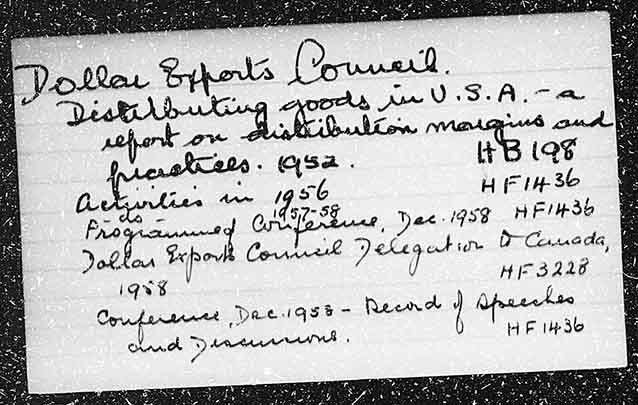 Dollar Exports Council.
Distributing goods in U.S.A. - a
report on distribution margins and
practices. 1952. HB198
Activities in 1956 HF1436
do 1957-58
Programmed Conference, Dec. 1958 HF1436
Dollar Exports Council Delegation to Canada,
1958 HF3228
Conference, Dec. 1958 - Record of speeches
and Discussions. HF1436